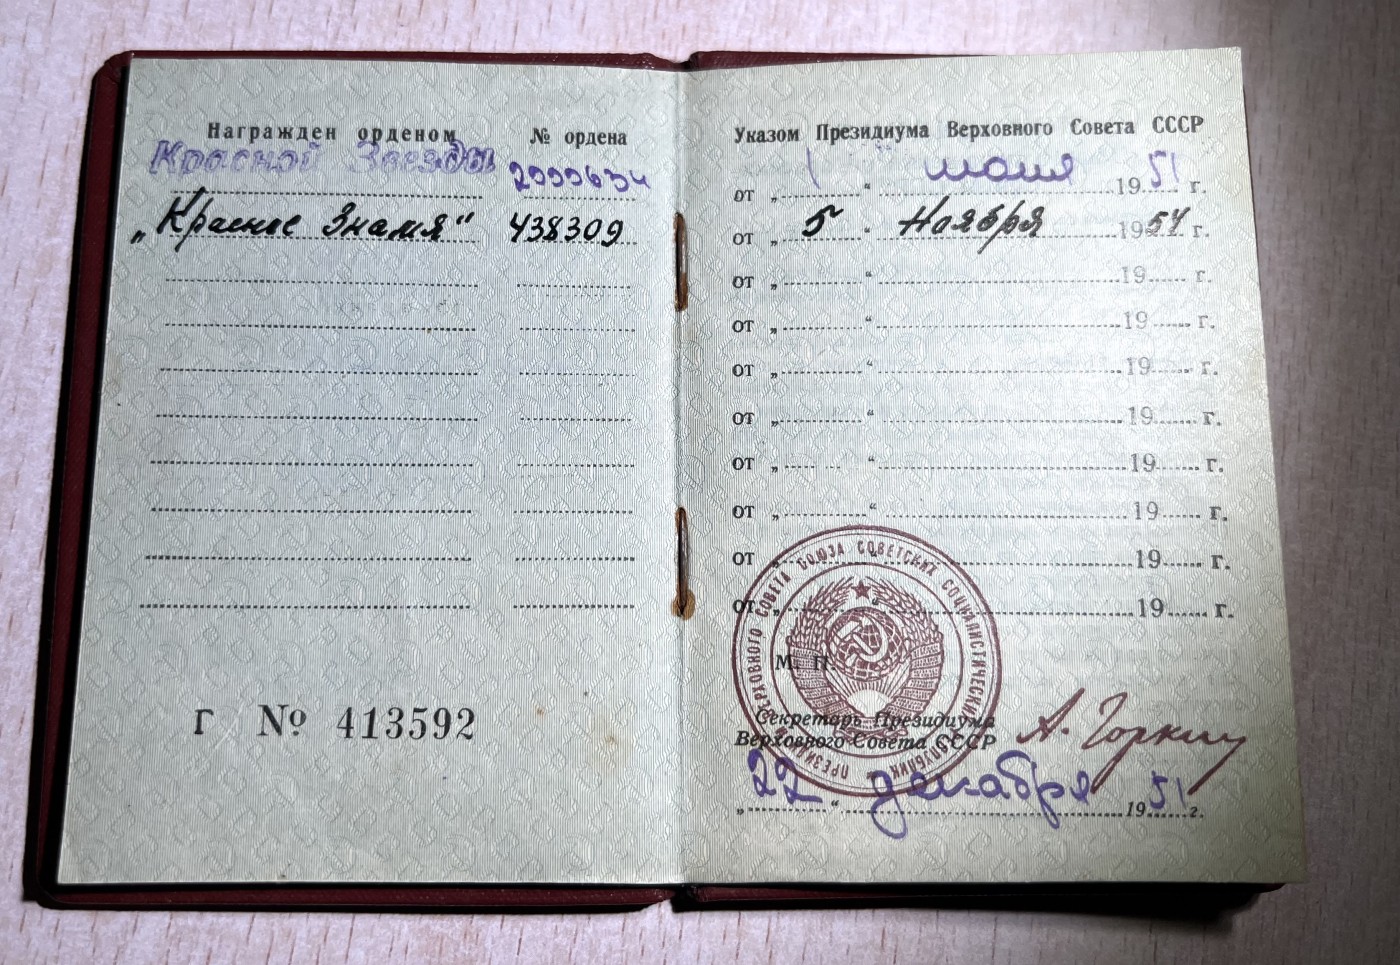 Награжден орденом № ордена
Красной Звезды
„Красное Знамя“ 438309
Г № 413592
Указом Президиума Верховного Совета СССР
от „ 1 “ 1951 г.
от „ 5 “ Ноября 1954 г.
от „ “ 19 г.
от „ “ 19 г.
от „ “ 19 г.
от „ “ 19 г.
от „ “ 19 г.
от „ “ 19 г.
от „ “ 19 г.
от „ “ 19 г.
ПРЕЗИДИУМ ВЕРХОВНОГО СОВЕТА СОЮЗА СОВЕТСКИХ СОЦИАЛИСТИЧЕСКИХ РЕСПУБЛИК
М. П.
Секретарь Президиума
Верховного Совета СССР А. Горкин
„ 22 “ декабря 1951 г.